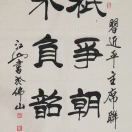 習近平主席聯
祇爭朝
不負韶
書於佛山